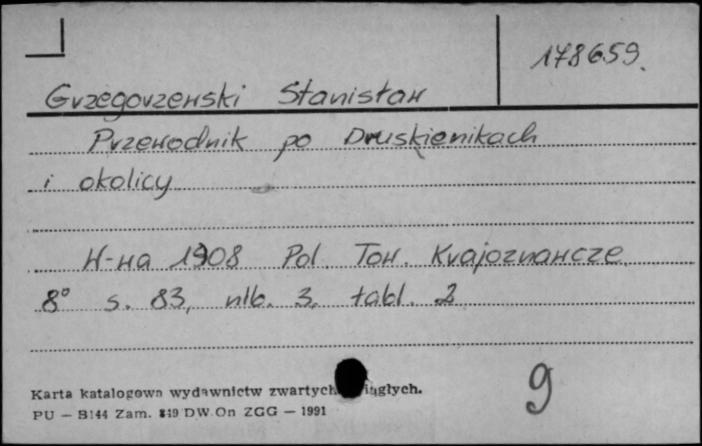 178659.
Grzegorzewski Stanisław
Przewodnik po Druskienikach
i okolicy
W-wa 1908 Pol. Tow. Krajoznawcze
8° s. 83, nlb. 3, tabl. 2
9
Karta katalogowa wydawnictw zwartych
PU — B144 Zam. 849 DW.On ZGG — 1991